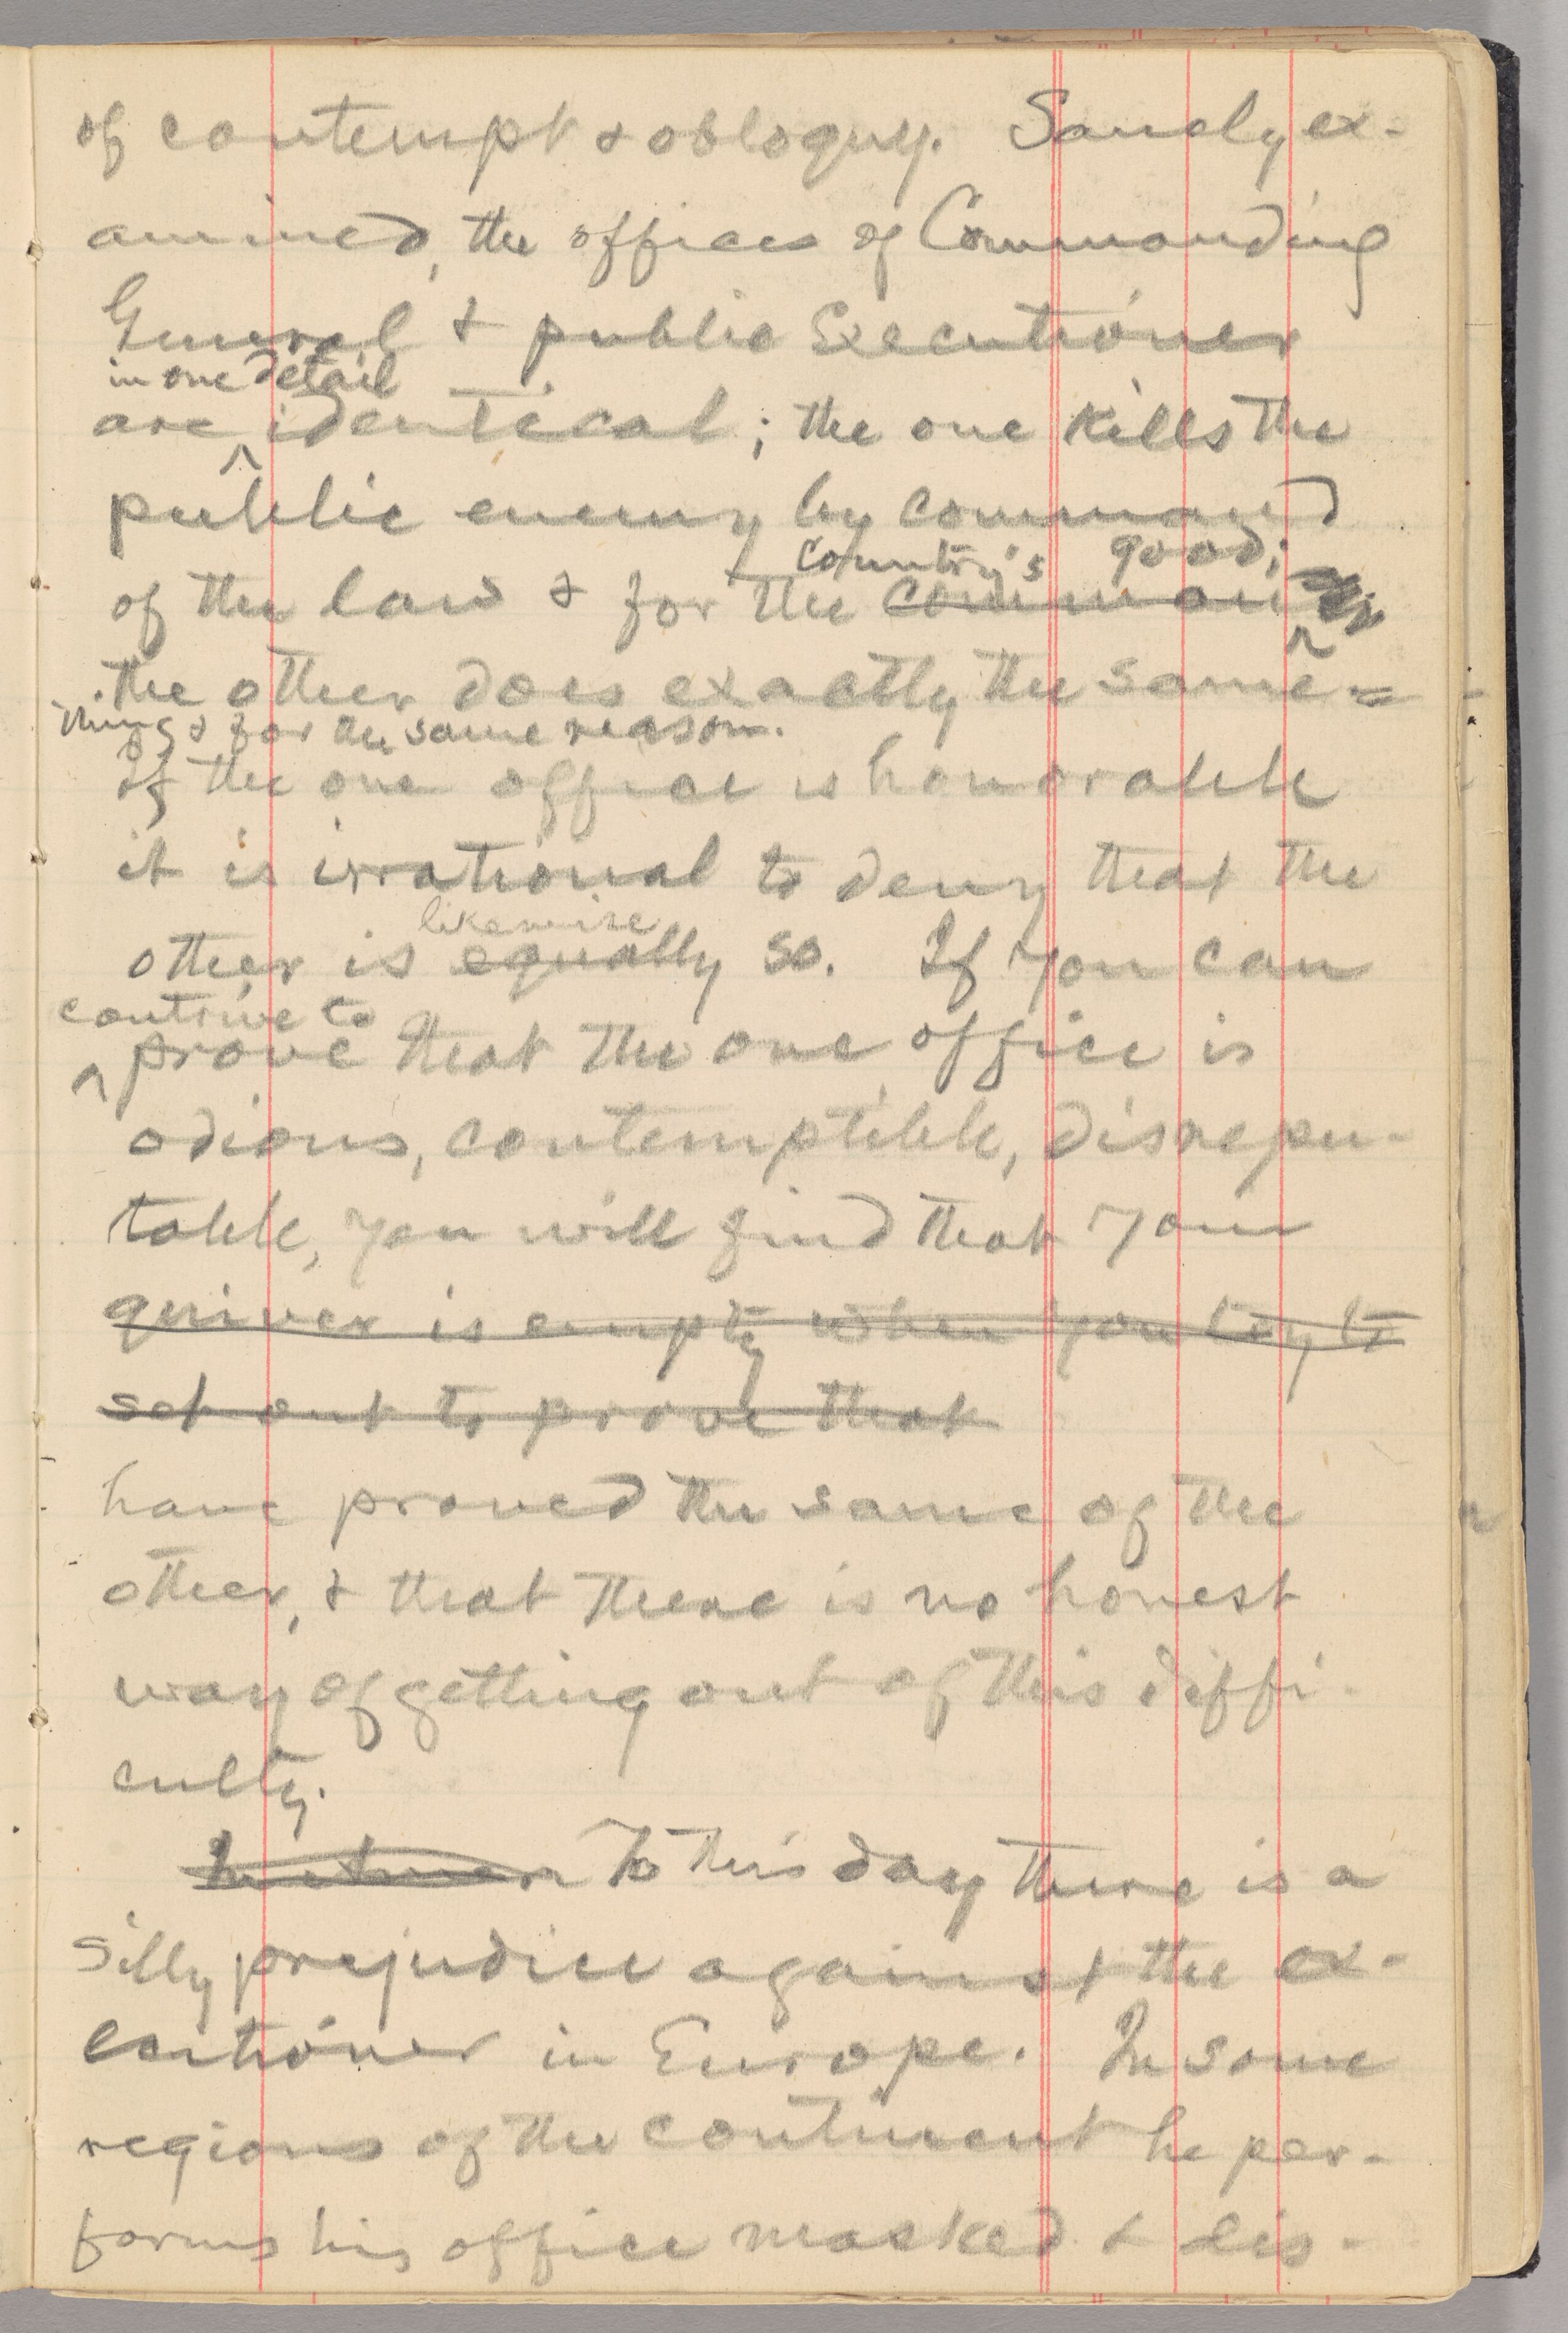 of contempt & obloquy. Sanely ex-
amined, the offices of Commanding
General & public Executioner
in one detail
are ^ identical; the one kills the
public enemy by command
country's good;
of the law & for the common
the other does exactly the same =
thing & for the same reason.
If the one office is honorable
it is irrational to deny that the
likewise
other is equally so. If you can
contrive to
^ prove that the one office is
odious, contemptible, disrepu-
table, you will find that you
quiver is empty when you try to
set out to prove that
have proved the same of the
other, & that there is no honest
way of getting out of this diffi-
culty.
To this day there is a
silly prejudice against the ex-
ecutioner in Europe. In some
regions of the continent he per-
forms his office masked & dis-